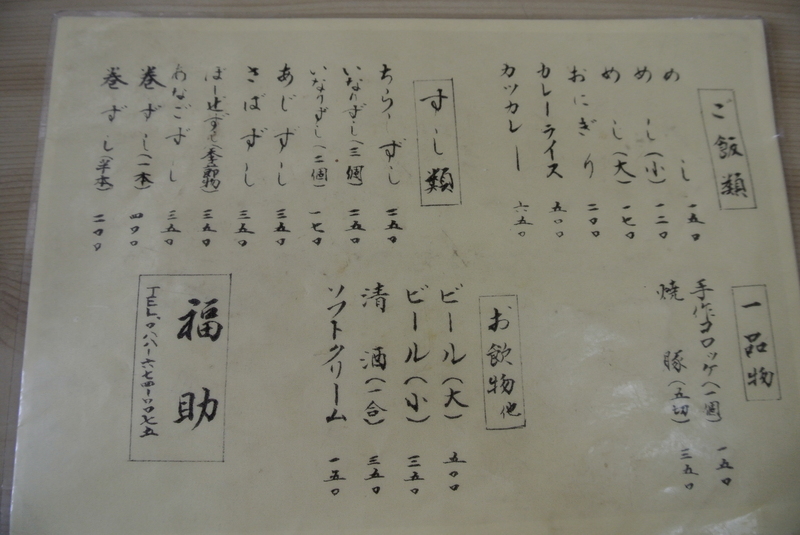 ご飯類
めし 一五〇
めし(小) 一二〇
めし(大) 一七〇
おにぎり 二〇〇
カレーライス 五〇〇
カツカレー 六五〇
すし類
ちらしずし 二五〇
いなりずし(三個) 二五〇
いなりずし(二個) 一七〇
あじずし 三五〇
さばずし 三五〇
ぼー連ずし(季節物) 三五〇
あなごずし 三五〇
巻ずし(一本) 四〇〇
巻ずし(半本) 二〇〇
一品物
手作コロッケ(一個) 一五〇
焼豚(五切) 三五〇
お飲物他
ビール(大) 五〇〇
ビール(小) 三五〇
清酒(一合) 三五〇
ソフトクリーム 一五〇
福助
TEL.〇八八-六七四-〇〇七五